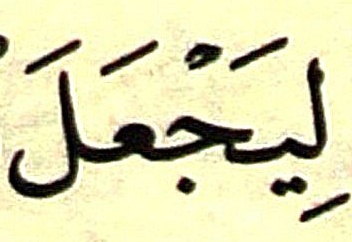 لِيَجْعَلَ